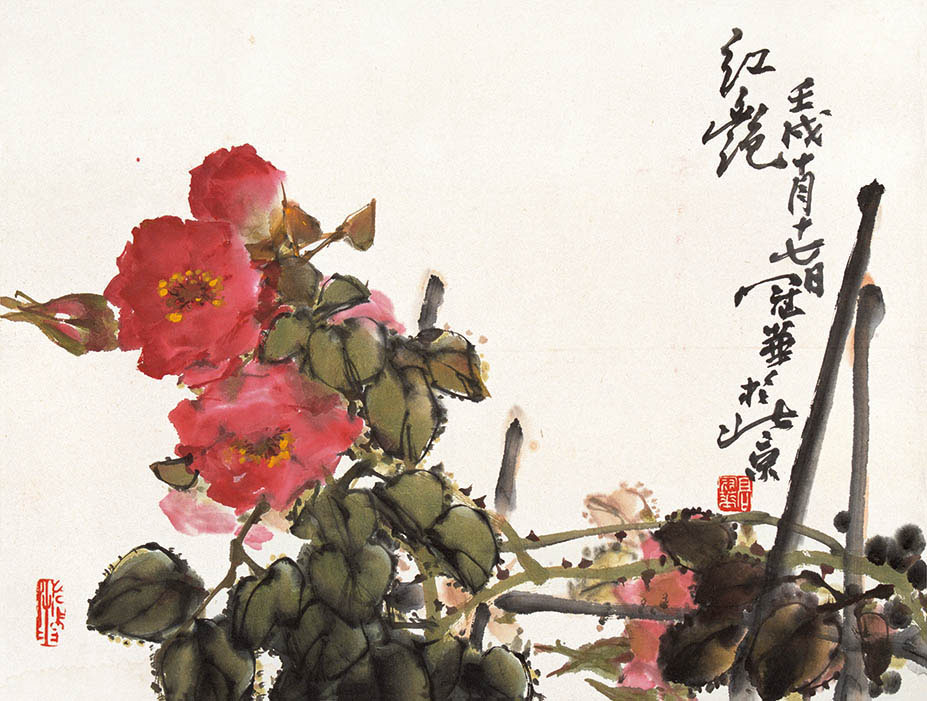 红艷
壬戌十月十七日冠華於北京